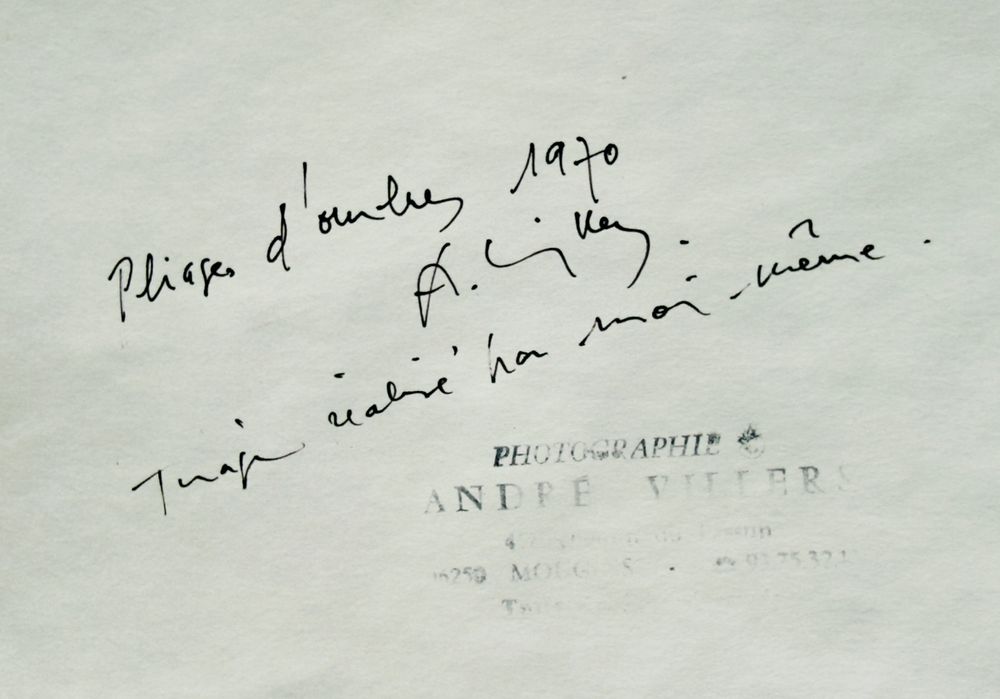 Pliages d'ombres 1970
A. Villers.
Tirage réalisé par moi-même.
PHOTOGRAPHIE
ANDRÉ VILLERS
MOUGINS